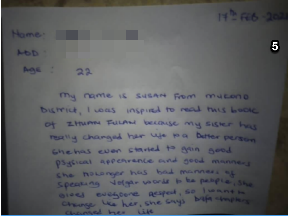 17th FEB - 202
Name:
ADD:
5
Age: 22
My name is SUSAN From MUKONO
District, I was inspired to read this book
of because my sister has
really changed her life to a better person
she has even started to gain good
pysical apperence and good manners
she nolonger has bad manners of
speaking vulgar words to people, she
gives everyone respect, so I want to
change like her, she says
changed her life